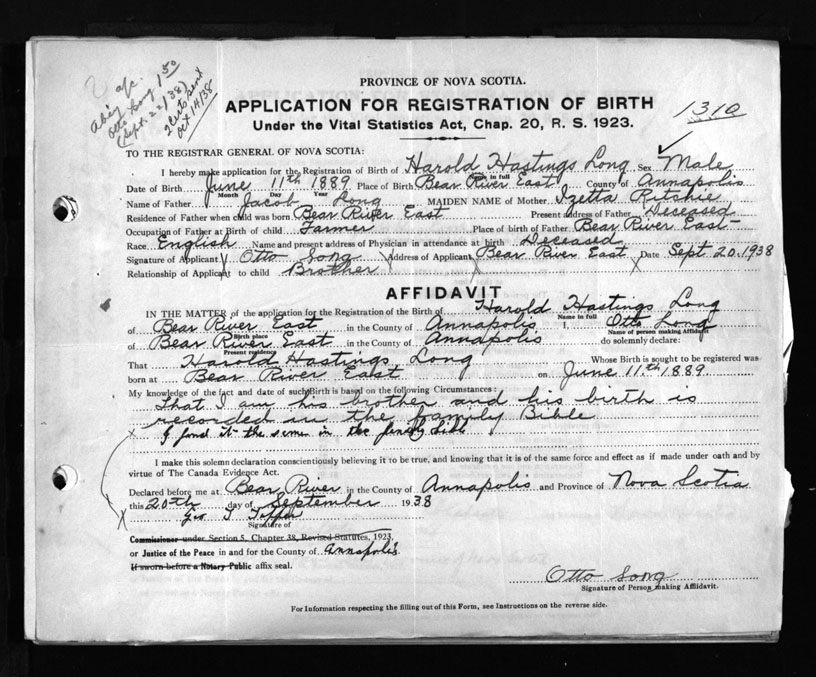 a/c.
Otto Long 1.50
(Sept. 22/38)
Oct 14/38
PROVINCE OF NOVA SCOTIA.
APPLICATION FOR REGISTRATION OF BIRTH
1310
Under the Vital Statistics Act, Chap. 20, R. S. 1923.
TO THE REGISTRAR GENERAL OF NOVA SCOTIA:
I hereby make application for the Registration of Birth of Harold Hastings Long Sex Male
Name in full
Date of Birth June 11th 1889 Place of Birth Bear River East County of Annapolis
Month Day Year
Name of Father Jacob Long MAIDEN NAME of Mother Izetta Ritchie
Residence of Father when child was born Bear River East Present address of Father Deseased
Occupation of Father at Birth of child Farmer Place of birth of Father Bear River East
Race English Name and present address of Physician in attendance at birth Deceased
Signature of Applicant Otto Long Address of Applicant Bear River East Date Sept 20. 1938
Relationship of Applicant to child Brother
AFFIDAVIT
IN THE MATTER of the application for the Registration of the Birth of Harold Hastings Long
Name in full
of Bear River East in the County of Annapolis I, Otto Long
Birth place Name of person making Affidavit
of Bear River East in the County of Annapolis do solemnly declare:
Present residence
That Harold Hastings Long Whose Birth is sought to be registered was
born at Bear River East on June 11th 1889.
My knowledge of the fact and date of such Birth is based on the following Circumstances:
That I am his brother and his birth is
recorded in the family Bible
x I find it the same in the family bible
I make this solemn declaration conscientiously believing it to be true, and knowing that it is of the same force and effect as if made under oath and by
virtue of The Canada Evidence Act.
Declared before me at Bear River in the County of Annapolis and Province of Nova Scotia
this 20th day of September 1938
Signature of
Commissioner under Section 5, Chapter 38, Revised Statutes, 1923,
or Justice of the Peace in and for the County of Annapolis.
If sworn before a Notary Public affix seal.
Otto Long
Signature of Person making Affidavit.
For Information respecting the filling out of this Form, see Instructions on the reverse side.